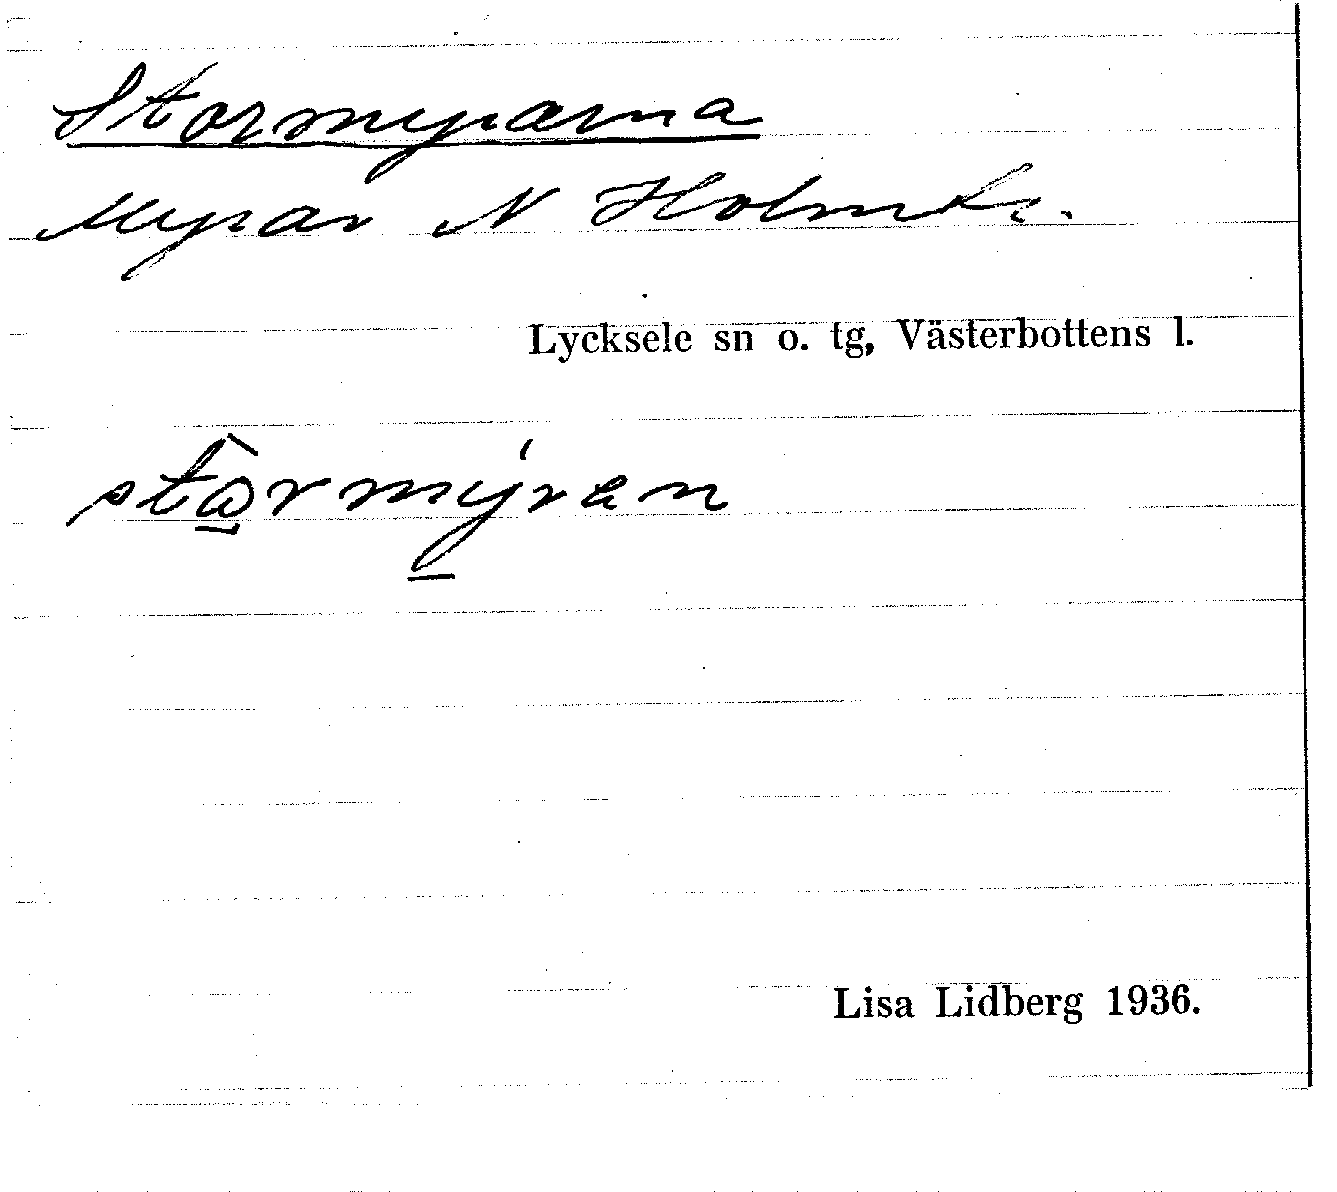 Stormyrarna
Myrar N Holmtr.
Lycksele sn o. tg, Västerbottens l.
stω̂rmy̍ran
Lisa Lidberg 1936.